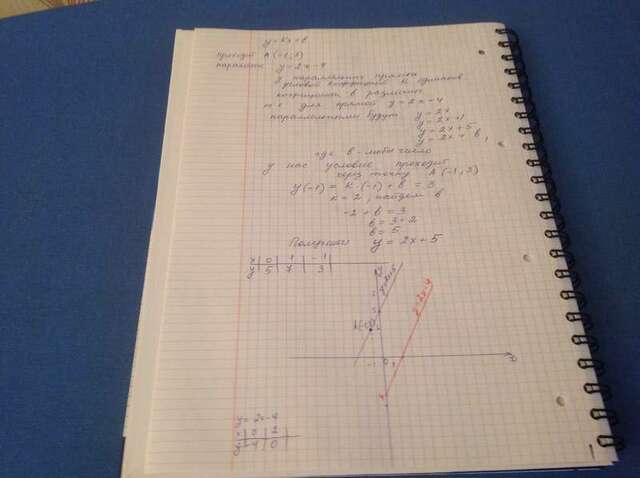 y = kx + b
проходит A (-1; 3)
параллельна y = 2x - 4
У параллельных прямых
угловой коэффициент k одинаков
коэффициент b различны
т.е. для прямой y = 2x - 4
параллельными будут y = 2x
y = 2x + 1
y = 2x + 5
y = 2x + b,
где b - любое число
у нас условие проходит
через точку A (-1; 3)
y(-1) = k · (-1) + b = 3
k = 2, найдем b
-2 + b = 3
b = 3 + 2
b = 5
Получили y = 2x + 5
x 0 1 -1
y 5 7 3
y
y=2x+5
y=2x-4
-1 0 1 x
y = 2x - 4
x 0 2
y -4 0